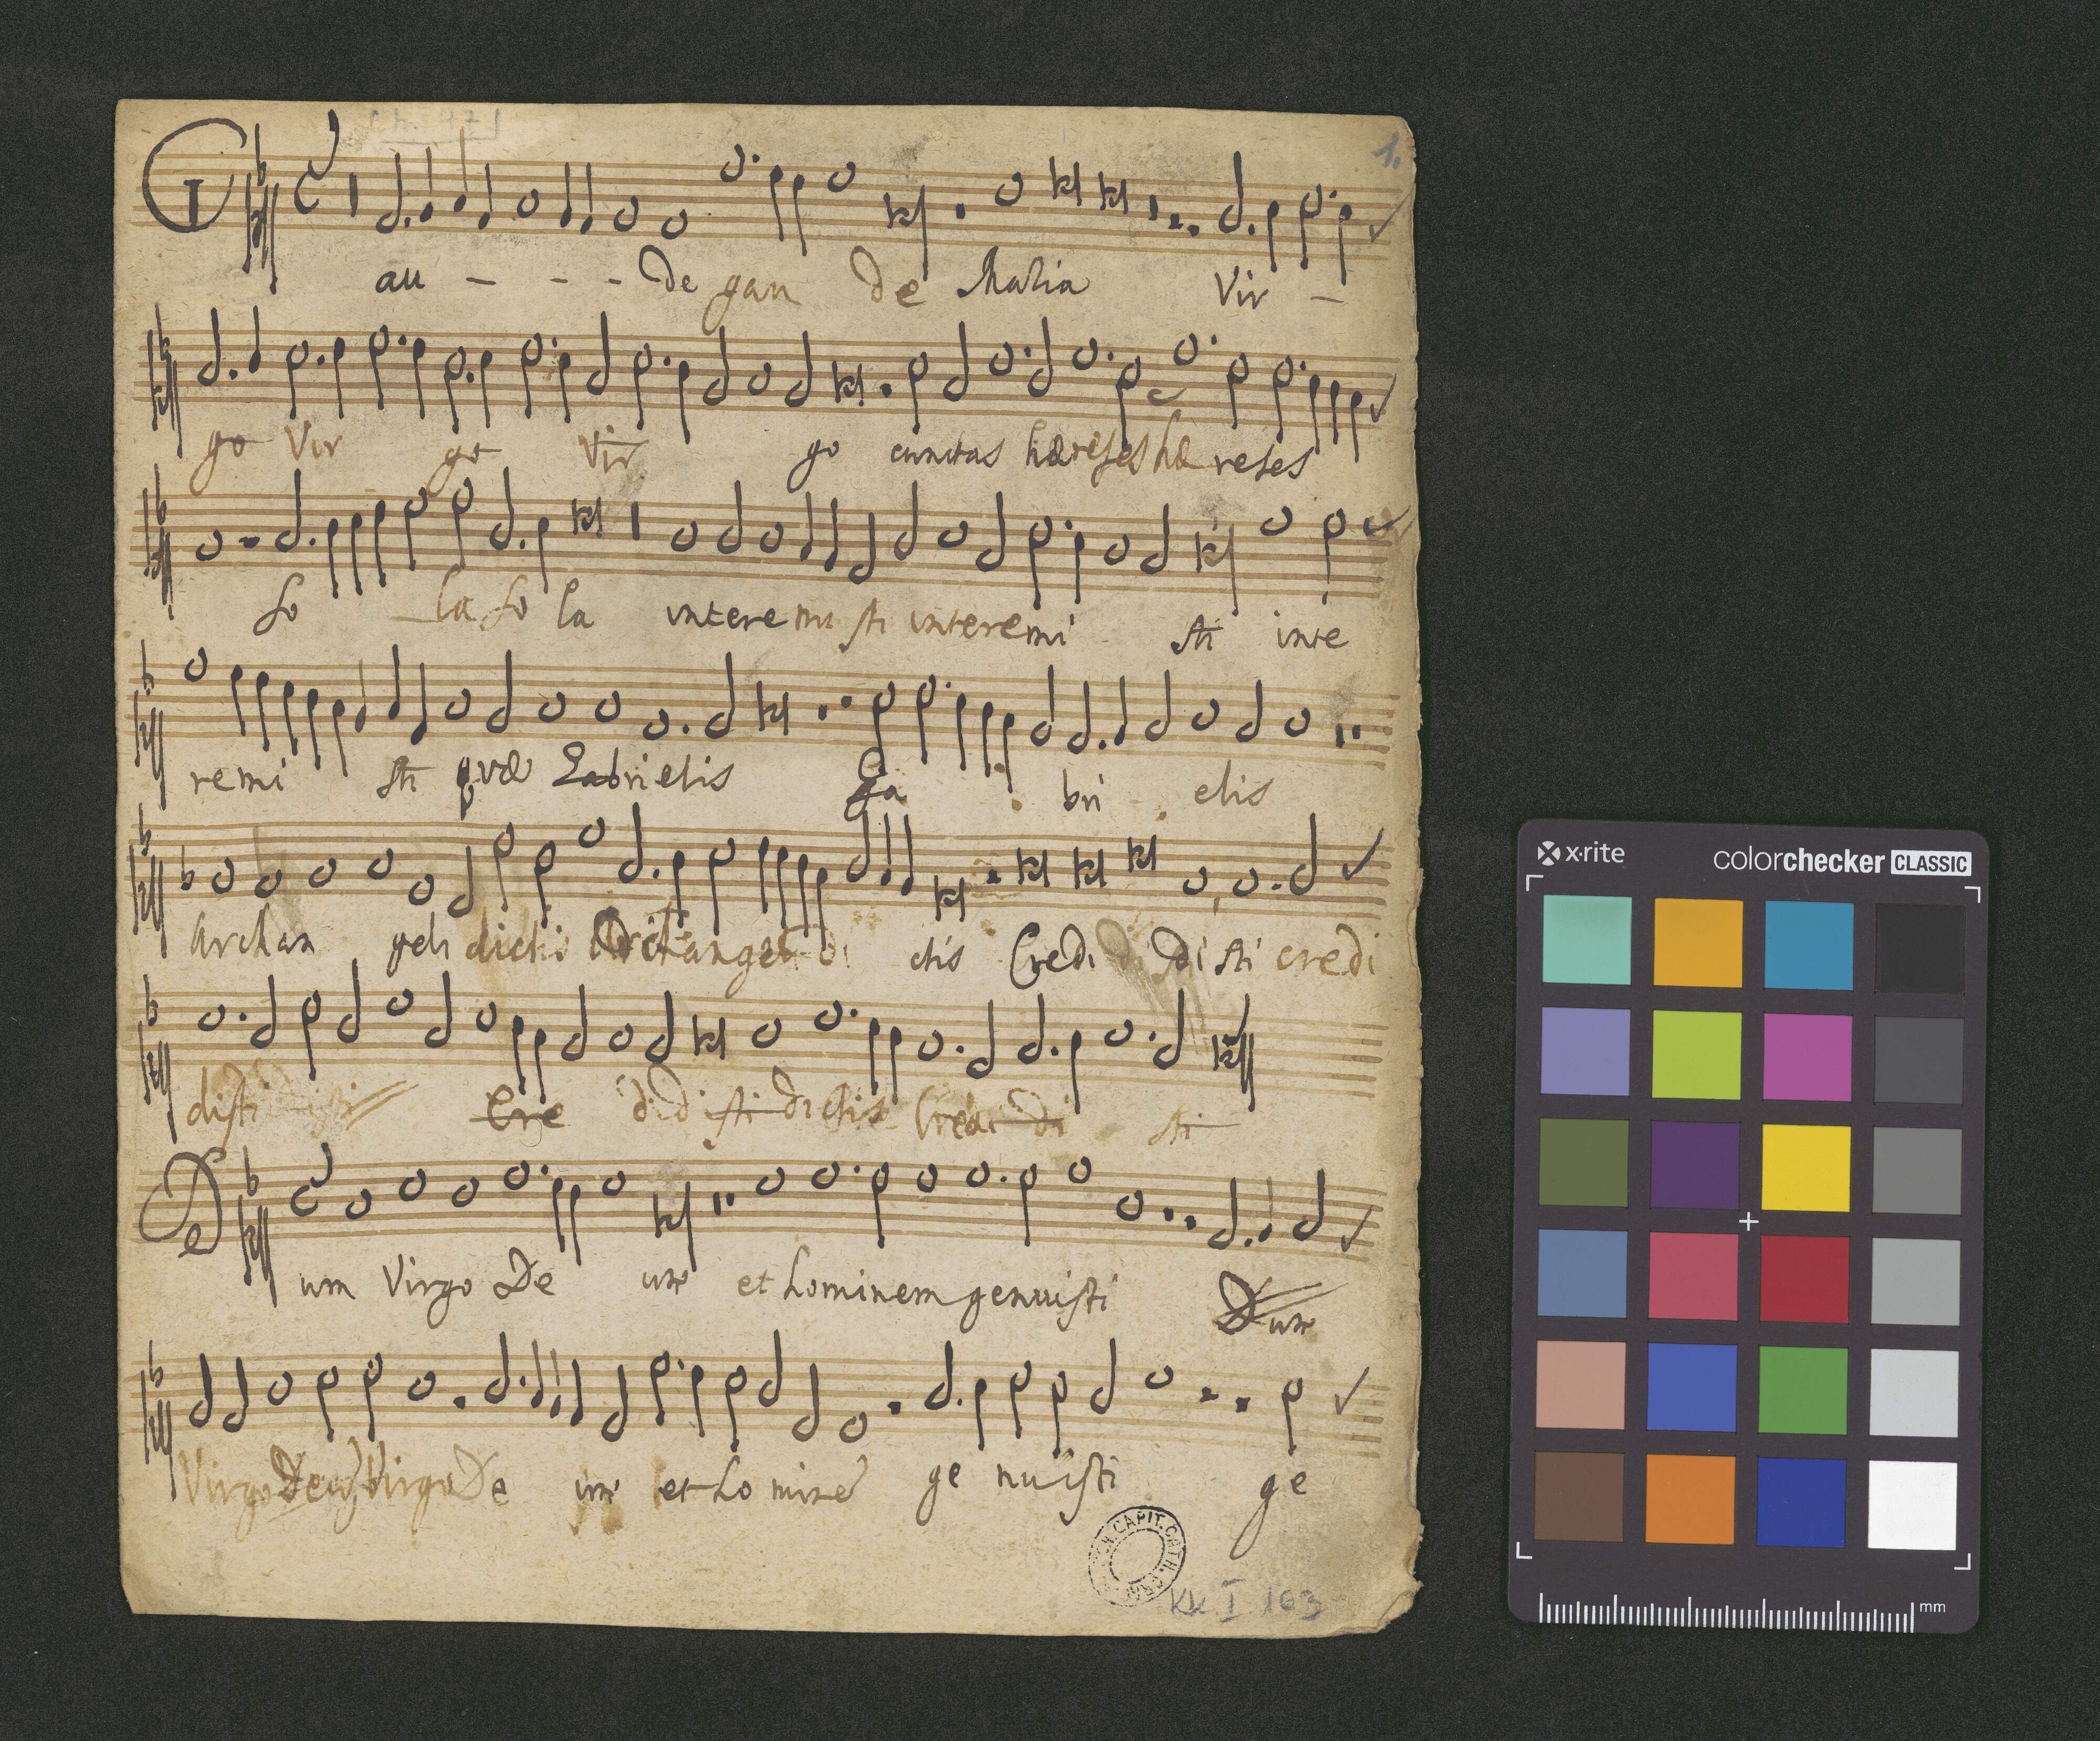 1.
G
au - - - de gau de Maria Vir -
go Vir go Vir go cunctas hæreses hæ reses
so la so la interemi sti interemi sti inte
remi sti quæ Gabrielis Ga bri elis
Archan geli dictis Archangeli di ctis Credi di disti credi
disti Cre didi sti dictis Credi di sti
De um Virgo De um et hominem genuisti Deum
Virgo Deum Virgo De um et ho mine ge nuisti ge
KK I 163
x-rite colorchecker CLASSIC
mm